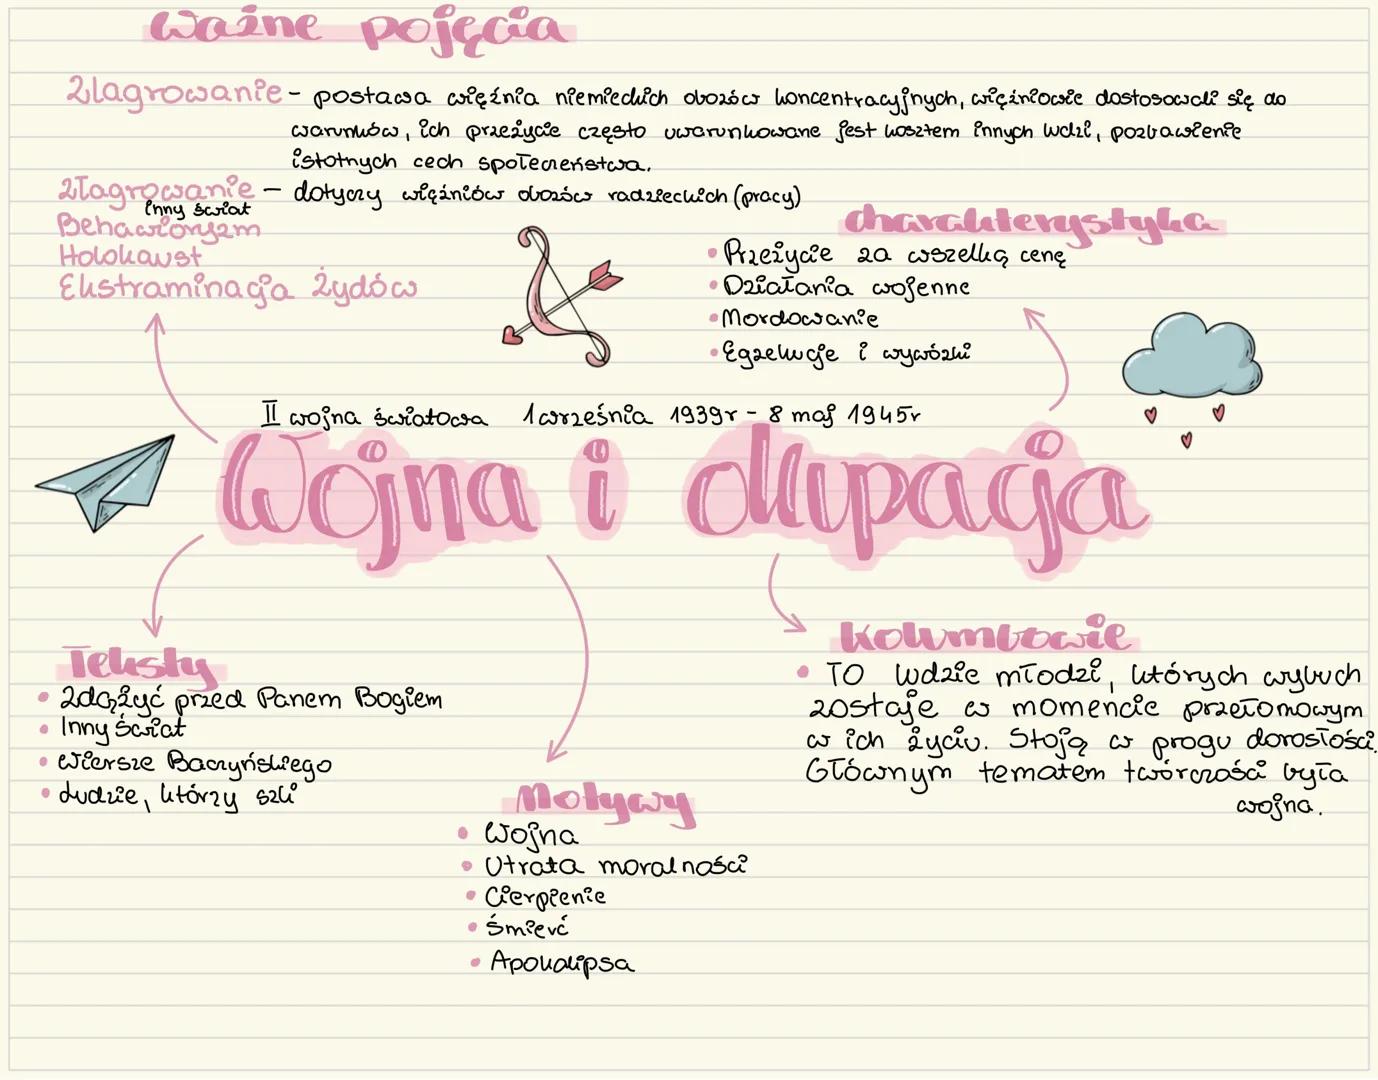 Ważne pojęcia
Zlagrowanie - postawa więźnia niemieckich obozów koncentracyjnych, więźniowie dostosowali się do
warunków, ich przeżycie często uwarunkowane jest kosztem innych ludzi, pozbawienie
istotnych cech społeczeństwa.
Złagrowanie - dotyczy więźniów obozów radzieckich (pracy)
Inny świat
Behawioryzm
Holokaust
Ekstraminacja Żydów
charakterystyka
• Przeżycie za wszelką cenę
• Działania wojenne
• Mordowanie
• Egzekucje i wywózki
II wojna światowa 1 września 1939r - 8 maj 1945r
Wojna i okupacja
Teksty
• Zdążyć przed Panem Bogiem
• Inny świat
• wiersze Baczyńskiego
• Ludzie, którzy szli
Motywy
• Wojna
• Utrata moralności
• Cierpienie
• Śmierć
• Apokalipsa
Kolumbowie
• TO ludzie młodzi, których wybuch
zostaje w momencie przełomowym
w ich życiu. Stoją w progu dorosłości.
Głównym tematem twórczości była
wojna.